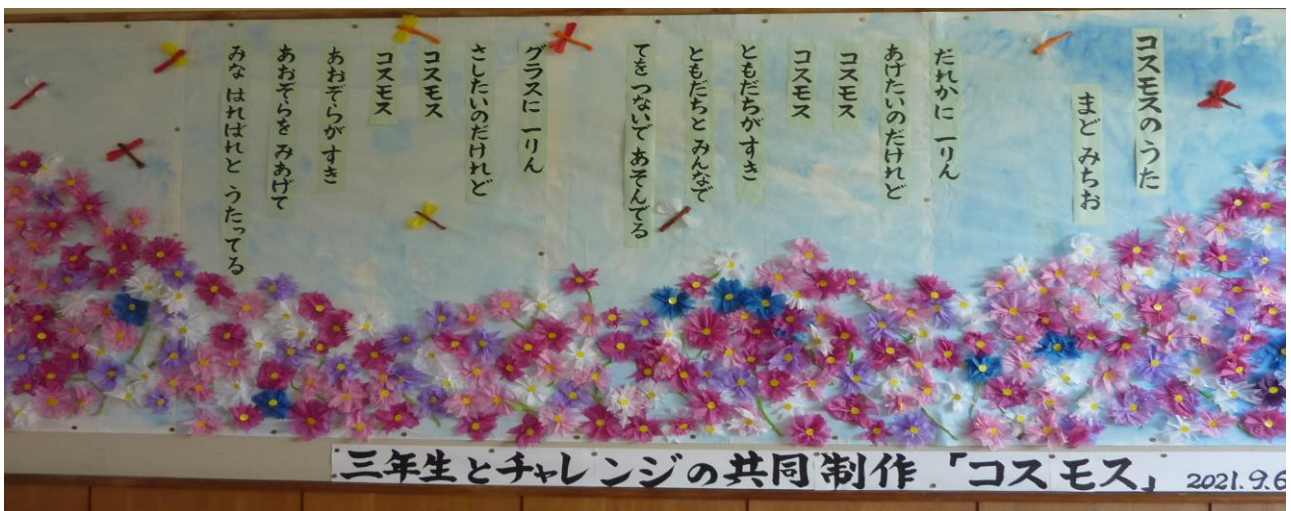 コスモスのうた
まど みちお
だれかに 一りん
あけたいのだけれど
コスモス
コスモス
ともだちが すき
ともだちと みんなで
てを つないで あそんでる
グラスに 一りん
さしたいのだけれど
コスモス
コスモス
あおぞらが すき
あおぞらを みあげて
みな はればれと うたってる
三年生とチャレンジの共同制作「コスモス」 2021.9.6